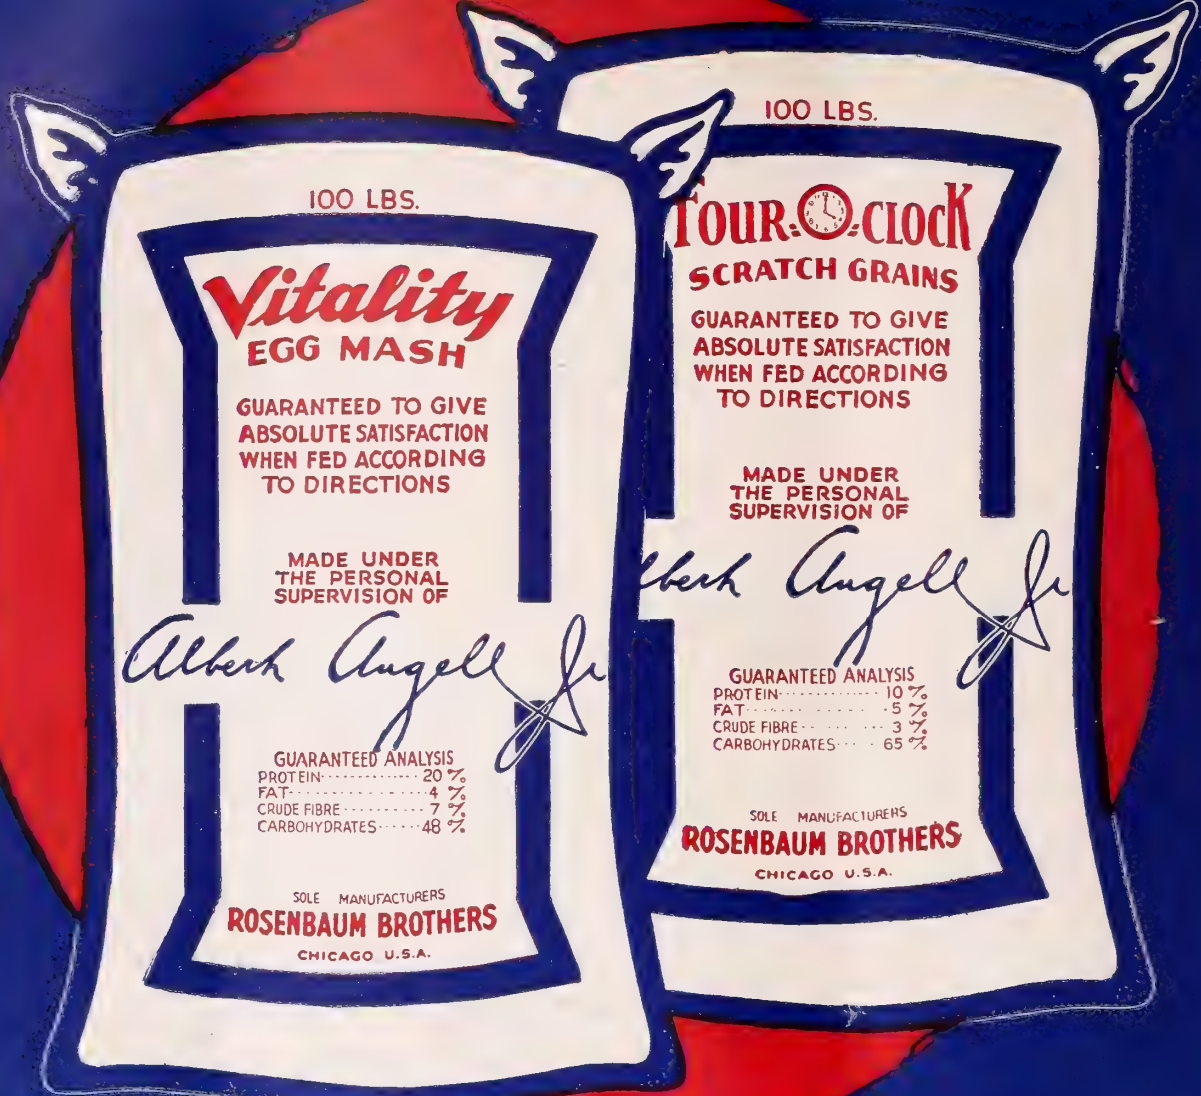 100 LBS.
Vitality
EGG MASH
GUARANTEED TO GIVE
ABSOLUTE SATISFACTION
WHEN FED ACCORDING
TO DIRECTIONS
MADE UNDER
THE PERSONAL
SUPERVISION OF
Albert Angell Jr
GUARANTEED ANALYSIS
PROTEIN 20 %
FAT 4 %
CRUDE FIBRE 7 %
CARBOHYDRATES 48 %
SOLE MANUFACTURERS
ROSENBAUM BROTHERS
CHICAGO U.S.A.
100 LBS.
FOUR O CLOCK
SCRATCH GRAINS
GUARANTEED TO GIVE
ABSOLUTE SATISFACTION
WHEN FED ACCORDING
TO DIRECTIONS
MADE UNDER
THE PERSONAL
SUPERVISION OF
lbert Angell Jr
GUARANTEED ANALYSIS
PROTEIN 10 %
FAT 5 %
CRUDE FIBRE 3 %
CARBOHYDRATES 65 %
SOLE MANUFACTURERS
ROSENBAUM BROTHERS
CHICAGO U.S.A.